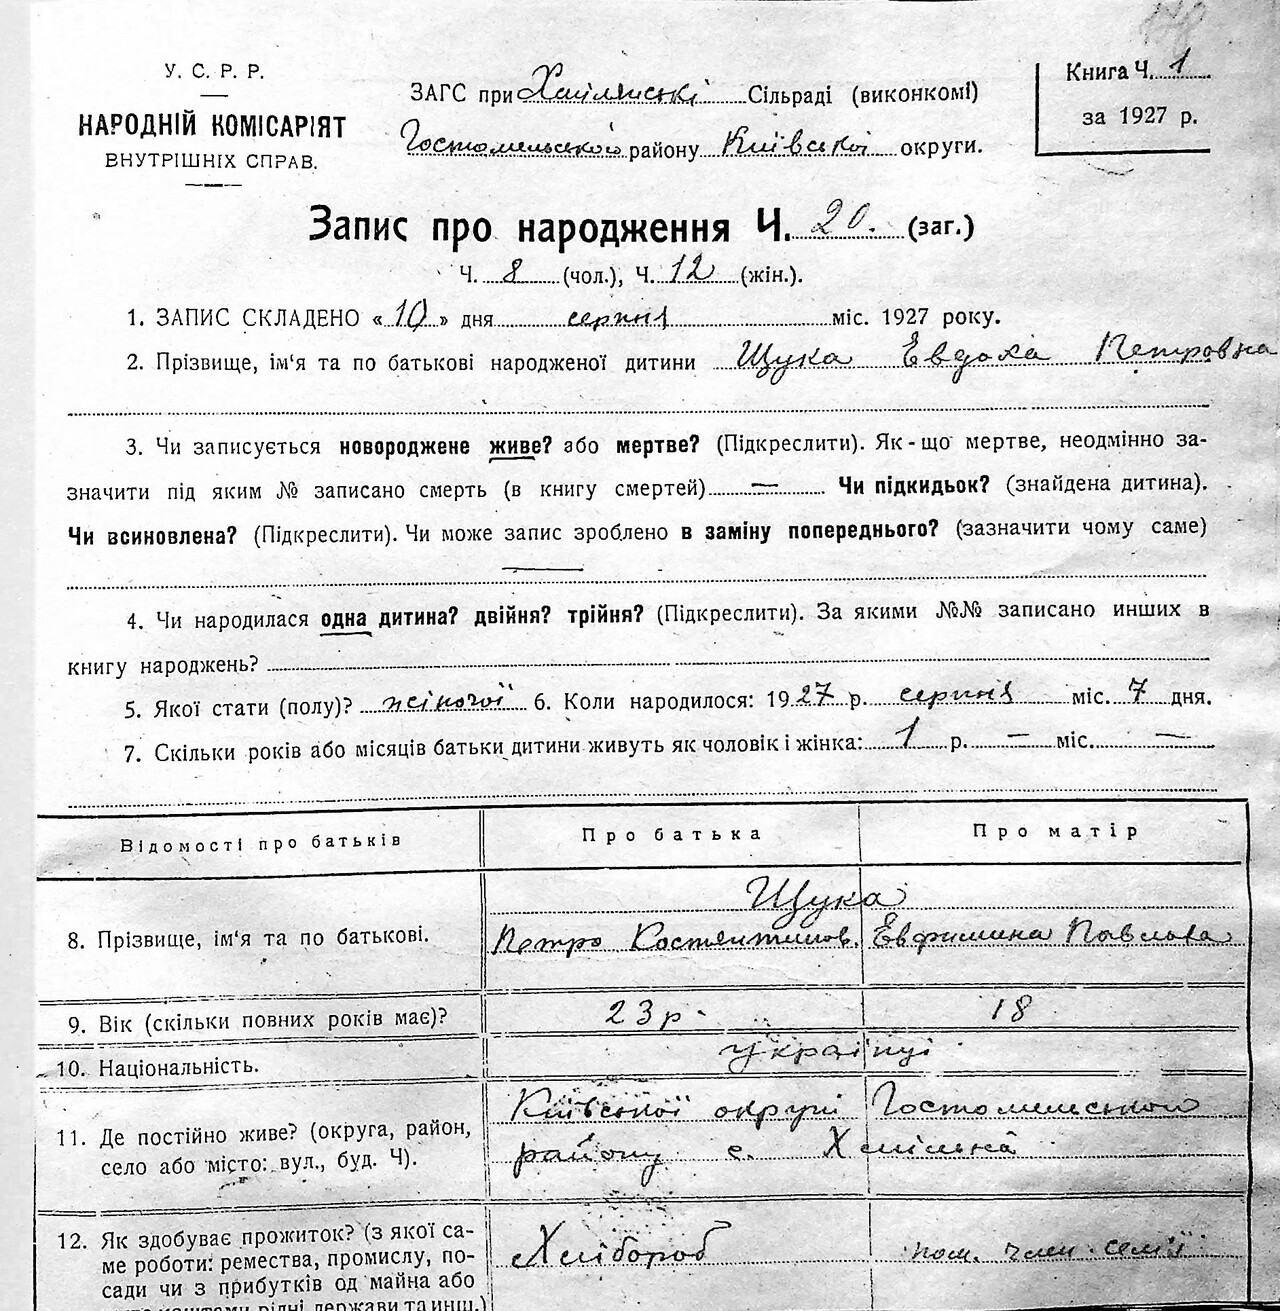 У. С. Р. Р.
НАРОДНІЙ КОМІСАРІЯТ
ВНУТРІШНІХ СПРАВ.
ЗАГС при Хмілянські Сільраді (виконкомі)
Гостомельського району Київської округи.
Книга Ч. 1
за 1927 р.
Запис про народження Ч. 20. (заг.)
Ч. 8 (чол.), Ч. 12 (жін.).
1. ЗАПИС СКЛАДЕНО «10» дня серпня міс. 1927 року.
2. Прізвище, ім‘я та по батькові народженої дитини Щука Евдоха Петровна
3. Чи записується новороджене живе? або мертве? (Підкреслити). Як-що мертве, неодмінно за-
значити під яким № записано смерть (в книгу смертей) — Чи підкидьок? (знайдена дитина).
Чи всиновлена? (Підкреслити). Чи може запис зроблено в заміну попереднього? (зазначити чому саме)
4. Чи народилася одна дитина? двійня? трійня? (Підкреслити). За якими №№ записано инших в
книгу народжень?
5. Якої стати (полу)? жіночої 6. Коли народилося: 1927 р. серпня міс. 7 дня.
7. Скільки років або місяців батьки дитини живуть як чоловік і жінка: 1 р. — міс. —
Відомості про батьків
Про батька
Про матір
Щука
8. Прізвище, ім‘я та по батькові.
Петро Костянтинов.
Евфимина Павлова
9. Вік (скільки повних років має)?
23 р.
18
10. Національність.
українці
11. Де постійно живе? (округа, район,
село або місто: вул., буд. Ч).
Київської округи Гостомельского
району с. Хмільна
12. Як здобуває прожиток? (з якої са-
ме роботи: ремества, промислу, по-
сади чи з прибутків од майна або
Хлібороб
пом. член семії
коштами рідні, держави та инш.)